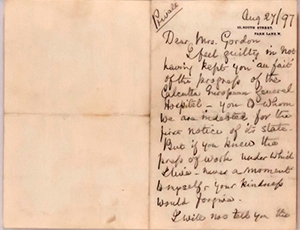 Private
Aug 27/97
10, SOUTH STREET,
PARK LANE. W.
Dear Mrs. Gordon
I feel guilty in not
having kept you "au fait"
of the progress of the
Calcutta European General
Hospital - you to whom
we are indebted for the
first notice of its state.
But if you knew the
press of work under which
I live - never a moment
to myself - your kindness
would forgive.
I will not tell you the